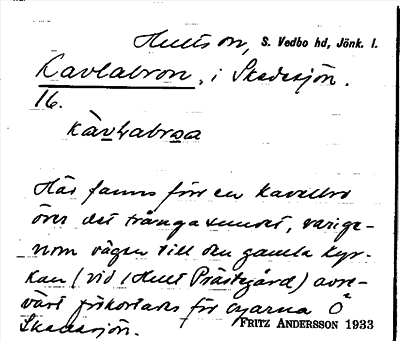 Hultson, S. Vedbo hd, Jönk. l.
Kavlabron, i Skedesjön.
16.
Här fanns förr en kavelbro
över det trånga sundet, varige-
nom vägen till den gamla kyr-
kan (vid 1 Hult Prästgård) avse-
värt förkortades för öarna
Skedesjön.
FRITZ ANDERSSON 1933